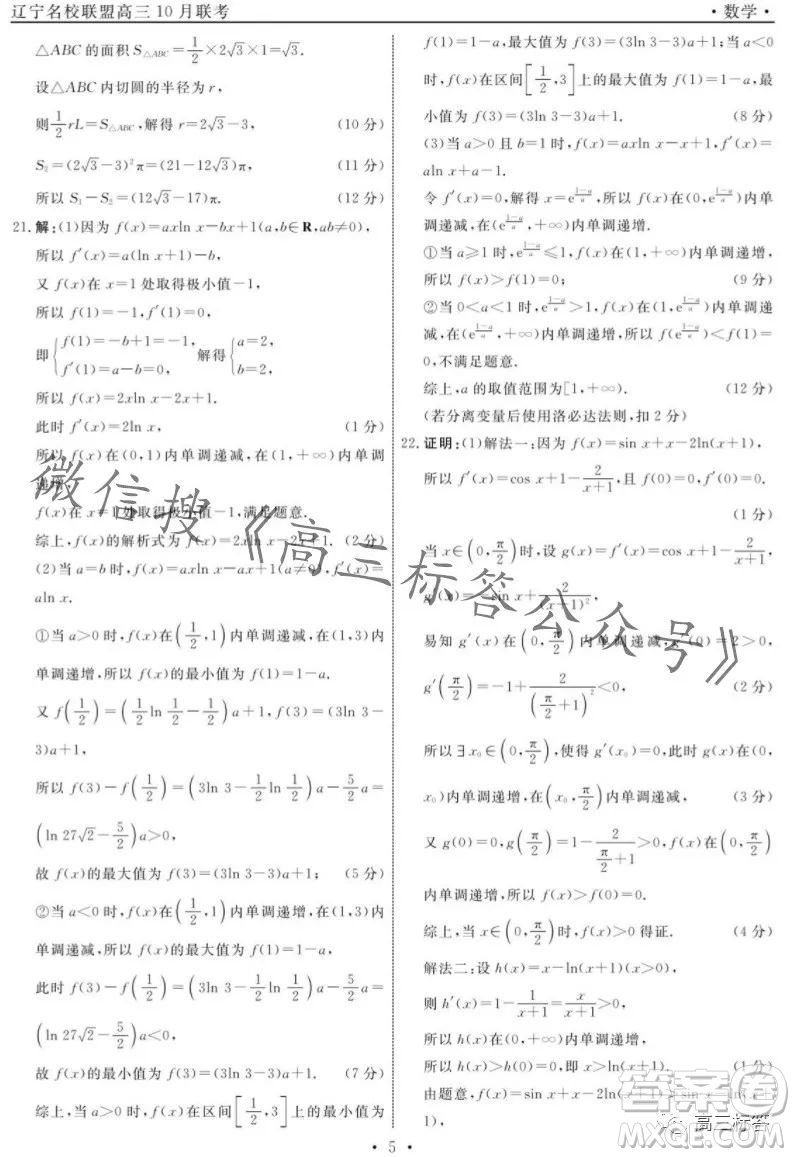 辽宁名校联盟高三10月联考
·数学·
△ABC的面积S△ABC=1/2×2√3×1=√3.
设△ABC内切圆的半径为r,
则1/2rL=S△ABC,解得r=2√3-3, (10分)
S₂=(2√3-3)²π=(21-12√3)π, (11分)
所以S₁-S₂=(12√3-17)π. (12分)
21.解:(1)因为f(x)=axln x-bx+1(a,b∈R,ab≠0),
所以f′(x)=a(ln x+1)-b,
又f(x)在x=1处取得极小值-1,
所以f(1)=-1,f′(1)=0,
即{f(1)=-b+1=-1, f′(1)=a-b=0, 解得{a=2, b=2,
所以f(x)=2xln x-2x+1.
此时f′(x)=2ln x, (1分)
所以f(x)在(0,1)内单调递减,在(1,+∞)内单调
递增,
f(x)在x=1处取得极小值-1,满足题意.
综上,f(x)的解析式为f(x)=2xln x-2x+1. (2分)
(2)当a=b时,f(x)=axln x-ax+1(a≠0),f′(x)=
aln x.
①当a>0时,f(x)在(1/2,1)内单调递减,在(1,3)内
单调递增,所以f(x)的最小值为f(1)=1-a.
又f(1/2)=(1/2ln 1/2-1/2)a+1,f(3)=(3ln 3-
3)a+1,
所以f(3)-f(1/2)=(3ln 3-1/2ln 1/2)a-5/2a=
(ln 27√2-5/2)a>0,
故f(x)的最大值为f(3)=(3ln 3-3)a+1; (5分)
②当a<0时,f(x)在(1/2,1)内单调递增,在(1,3)内
单调递减,所以f(x)的最大值为f(1)=1-a,
此时f(3)-f(1/2)=(3ln 3-1/2ln 1/2)a-5/2a=
(ln 27√2-5/2)a<0,
故f(x)的最小值为f(3)=(3ln 3-3)a+1. (7分)
综上,当a>0时,f(x)在区间[1/2,3]上的最小值为
f(1)=1-a,最大值为f(3)=(3ln 3-3)a+1;当a<0
时,f(x)在区间[1/2,3]上的最大值为f(1)=1-a,最
小值为f(3)=(3ln 3-3)a+1. (8分)
(3)当a>0且b=1时,f(x)=axln x-x+1,f′(x)=
aln x+a-1.
令f′(x)=0,解得x=e^((1-a)/a),所以f(x)在(0,e^((1-a)/a))内单
调递减,在(e^((1-a)/a),+∞)内单调递增.
①当a≥1时,e^((1-a)/a)≤1,f(x)在(1,+∞)内单调递增,
所以f(x)>f(1)=0; (9分)
②当0<a<1时,e^((1-a)/a)>1,f(x)在(1,e^((1-a)/a))内单调递
减,在(e^((1-a)/a),+∞)内单调递增,所以f(e^((1-a)/a))<f(1)=
0,不满足题意.
综上,a的取值范围为[1,+∞). (12分)
(若分离变量后使用洛必达法则,扣2分)
22.证明:(1)解法一:因为f(x)=sin x+x-2ln(x+1),
所以f′(x)=cos x+1-2/(x+1),且f(0)=0,f′(0)=0.
(1分)
当x∈(0,π/2)时,设g(x)=f′(x)=cos x+1-2/(x+1),
g′(x)=-sin x+2/(x+1)²,
易知g′(x)在(0,π/2)内单调递减,g′(0)=2>0,
g′(π/2)=-1+2/(π/2+1)²<0, (2分)
所以∃x₀∈(0,π/2),使得g′(x₀)=0,此时g(x)在(0,
x₀)内单调递增,在(x₀,π/2)内单调递减, (3分)
又g(0)=0,g(π/2)=1-2/(π/2+1)>0,f(x)在(0,π/2)
内单调递增,所以f(x)>f(0)=0.
综上,当x∈(0,π/2)时,f(x)>0得证. (4分)
解法二:设h(x)=x-ln(x+1),
则h′(x)=1-1/(x+1)=x/(x+1)>0,
所以h(x)在(0,+∞)内单调递增,
所以h(x)>h(0)=0,即x>ln(x+1). (1分)
由题意,f(x)=sin x+x-2ln(x+1)
1),
·5·
微信搜《高三标答公众号》
高三标答
答案圈
MXQE.COM